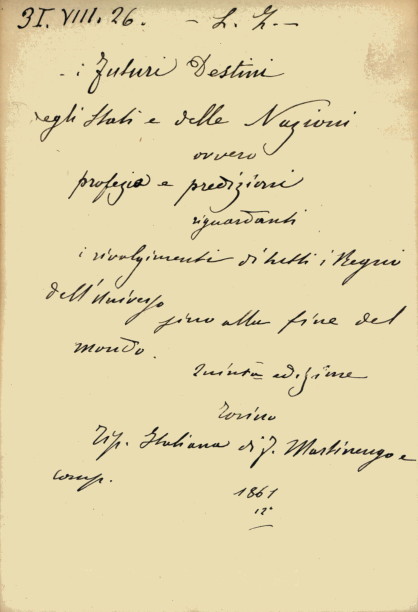 31. VIII. 26. - L. Z. -
- i Futuri Destini
degli Stati e delle Nazioni
ovvero
profezie e predizioni
riguardanti
i rivolgimenti di tutti i Regni
dell'Universo
sino alla fine del
mondo.
Quinta edizione
Torino
Tip. Italiana di F. Martinengo e
comp.
1861
12°